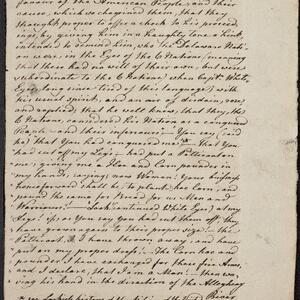 favour of the American People, and their
which, we imagined then, that they
thought proper to offer a check to his proceed-
ings, by giving him in a haughty tone a hint,
intended to remind him, who the Delaware Nati-
on were, in the Eyes of the 6 Nations, (meaning
that they had no will of their own, but were
subordinate to the 6 Nations) when Capt. White
Eyes, long since tired of this language, with
his usual spirit, and an air of disdain, rose,
and replied, that he well knew, that they, the
6 Nations, considered his Nation as a conquered
People — and their inferiours — You say, (said
he) that You had conquered me — That You
had cut off my Legs — had put a Petticoat on
me; giving me a Hoe and Corn pounder in
my hands; saying; now Woman! Your business
henceforward shall be, to plant, hoe Corn, and
pound the same for Bread, for us Men and
Warriours! — Look (continued White Eyes) at my
Legs! if, as You say, You had cut them off, they
have grown again to their proper size: — the
Petticoat, I have thrown away, and have
put on my proper dress: — The Corn hoe and
pounder, I have exchanged for these fire Arms,
and I declare, that I am a Man! — then wa-
ving his hand in the direction of the Allegheny
River